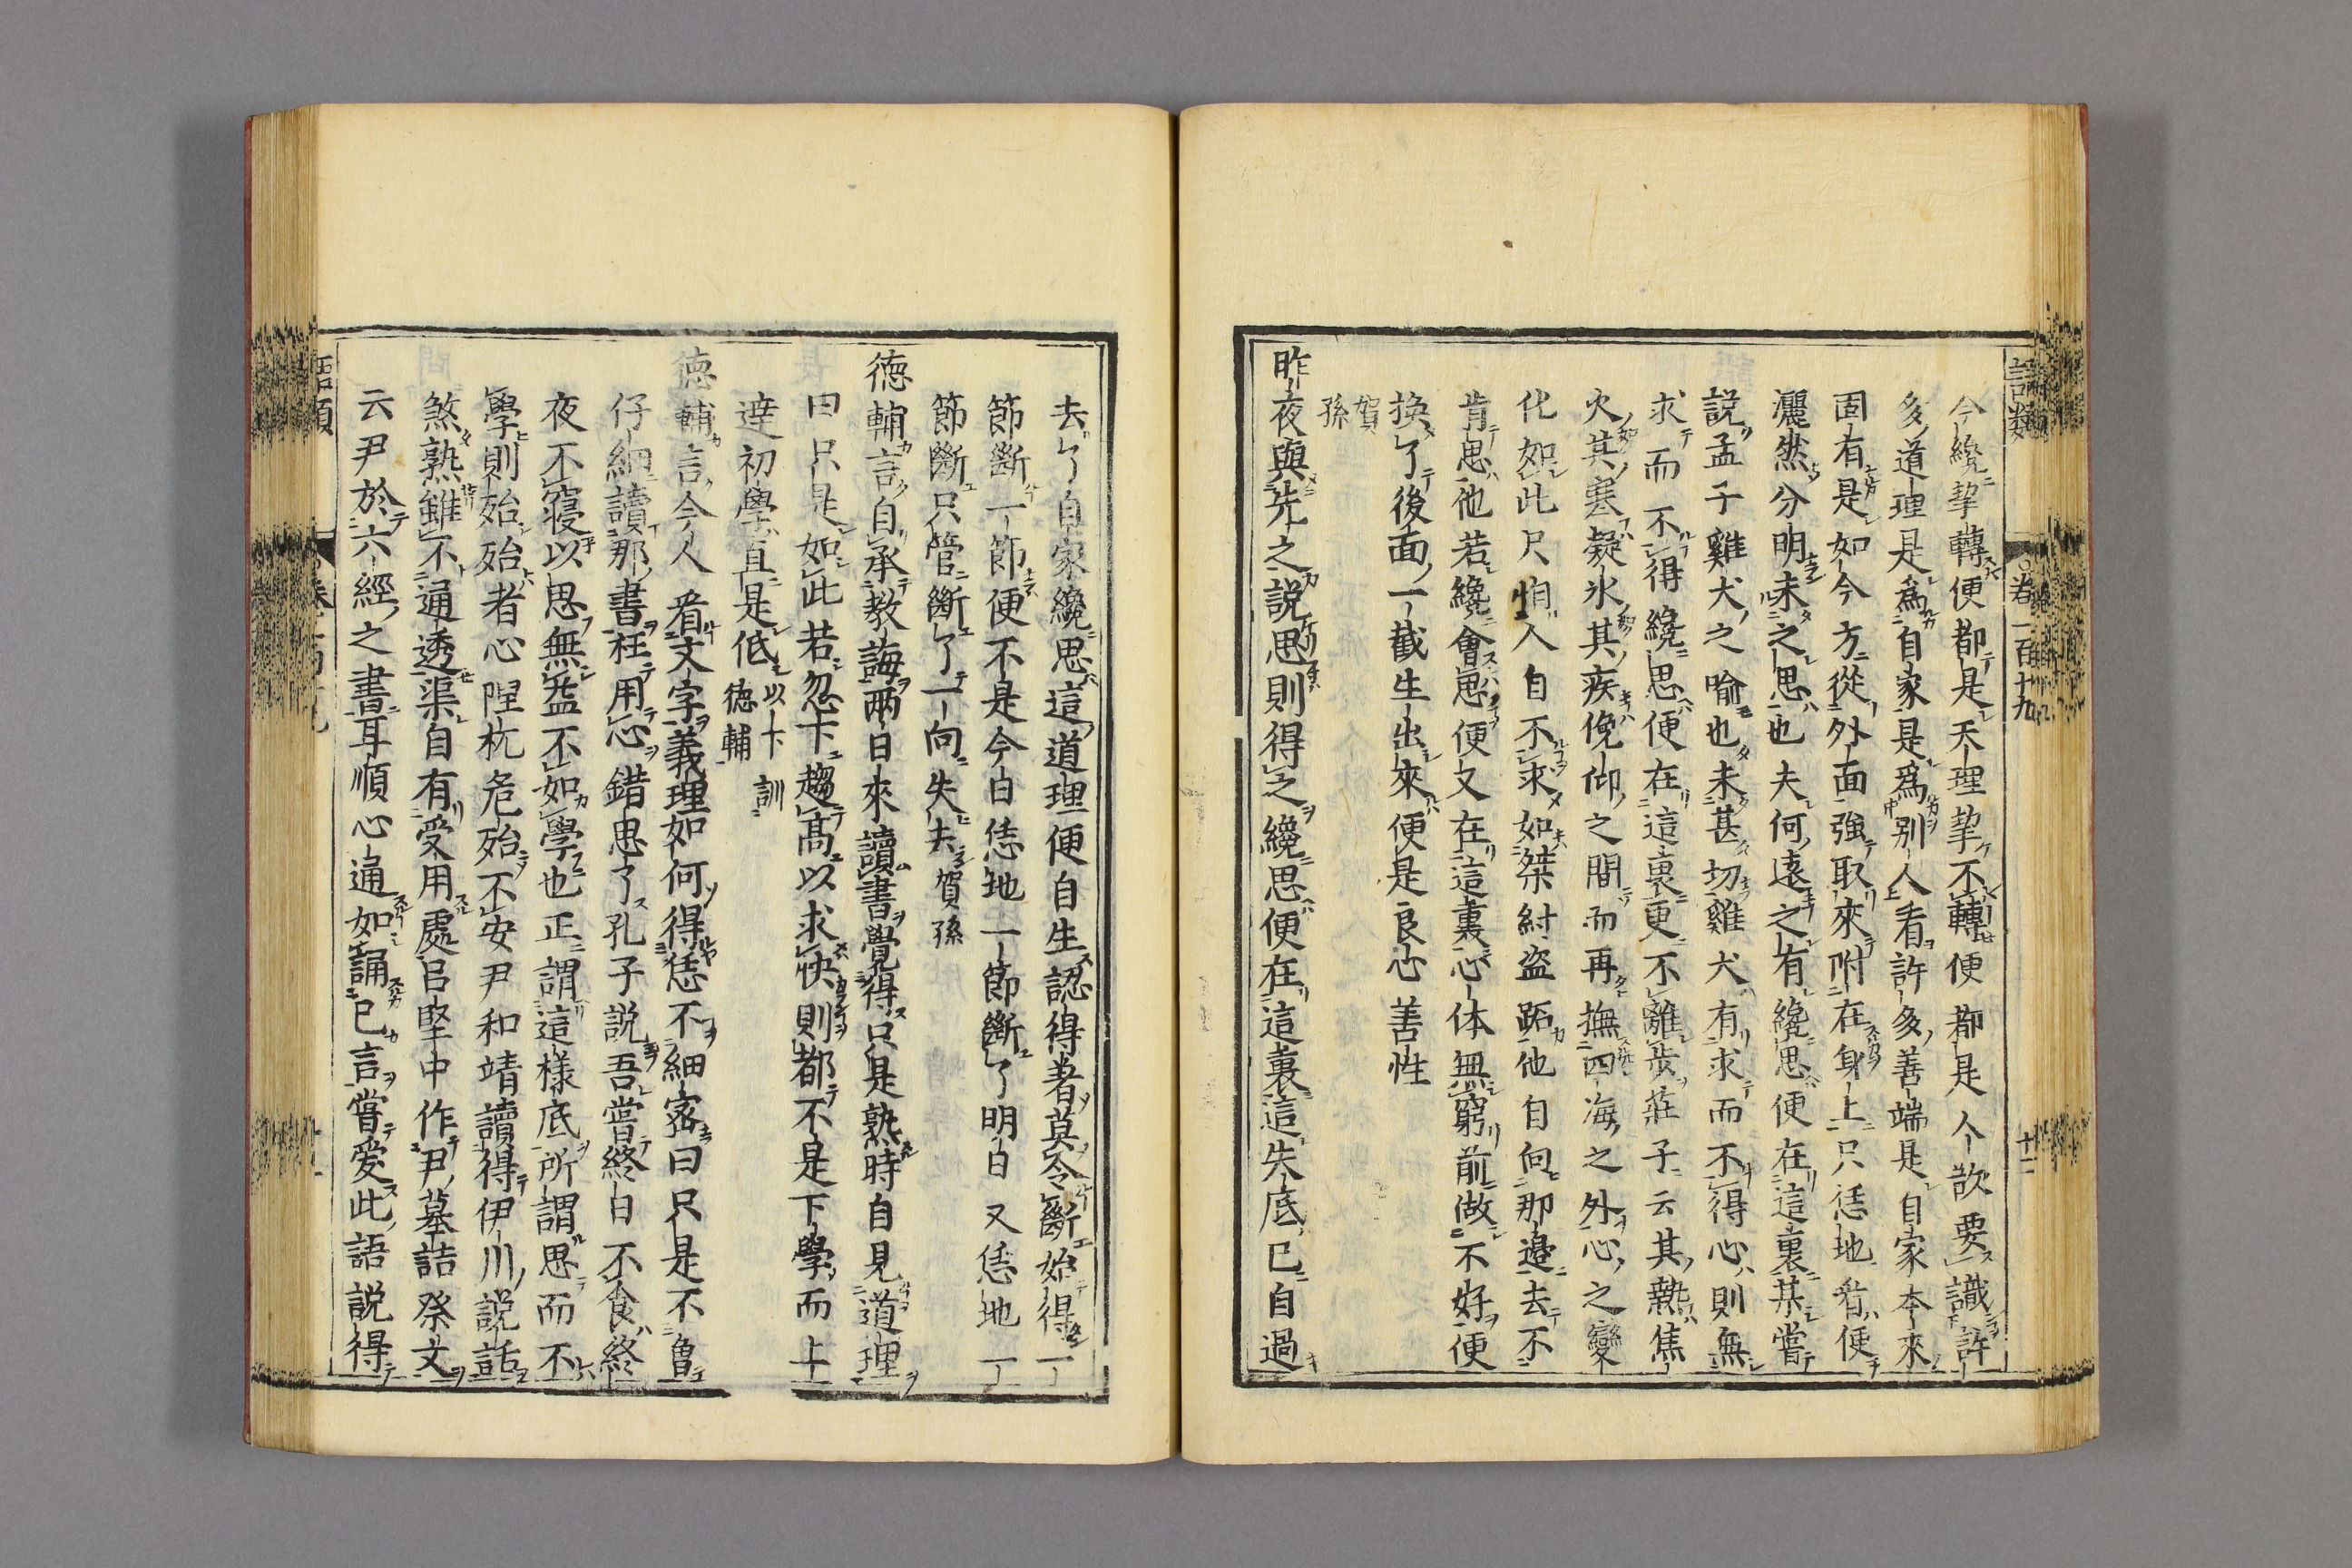 語類
卷一百十九
十二
今纔挚轉便都是天理挚不轉便都是人欲要識許
多道理是爲自家是爲別人看許多善端是自家本來
固有是如今方從外面強取來附在身上只恁地看便
灑然分明未之思也夫何遠之有纔思便在這裏某嘗
說孟子雞犬之喻也未甚切雞犬有求而不得心則無
求而不得纔思便在這裏更不離步莊子云其熱焦
火其寒凝氷其疾俛仰之間而再撫四海之外心之變
化如此只怕人自不求如桀紂盗跖他自向那邉去不
肯思他若纔會思便又在這裏心体無窮前做不好便
換了後面一截生出來便是良心善性
賀
孫
昨夜與先之說思則得之纔思便在這裏這失底已自過
去了自家纔思這道理便自生認得著莫令斷始得一
節斷一節便不是今日恁地一節斷了明日又恁地一
節斷只管斷了一向失去賀孫
德輔言自承教誨兩日來讀書覺得只是熟時自見道理
曰只是如此若忽下趨高以求快則都不是下學而上
達初學直是低
以下訓
德輔
德輔言今人看文字義理如何得恁不細密曰只是不曾
仔細讀那書枉用心錯思了孔子說吾嘗終日不食終
夜不寢以思無益不如學也正謂這樣底所謂思而不
學則殆殆者心隉杌危殆不安尹和靖讀得伊川說話
煞熟雖不通透渠自有受用處呂堅中作尹墓誌祭文
云尹於六經之書耳順心通如誦已言嘗愛此語說得
語類